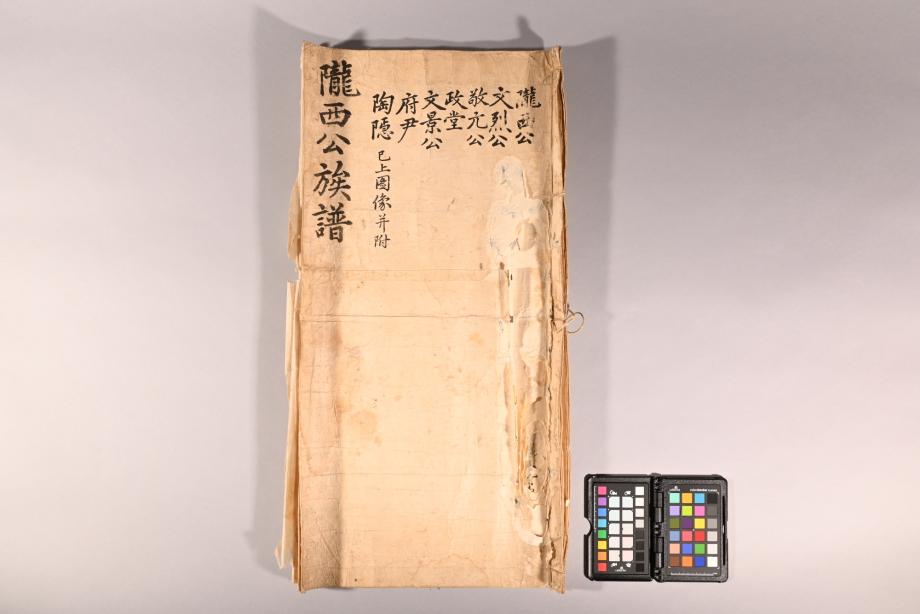 隴西公
文烈公
敬元公
政堂
文景公
府尹
陶隱 已上圖像并附
隴西公族譜